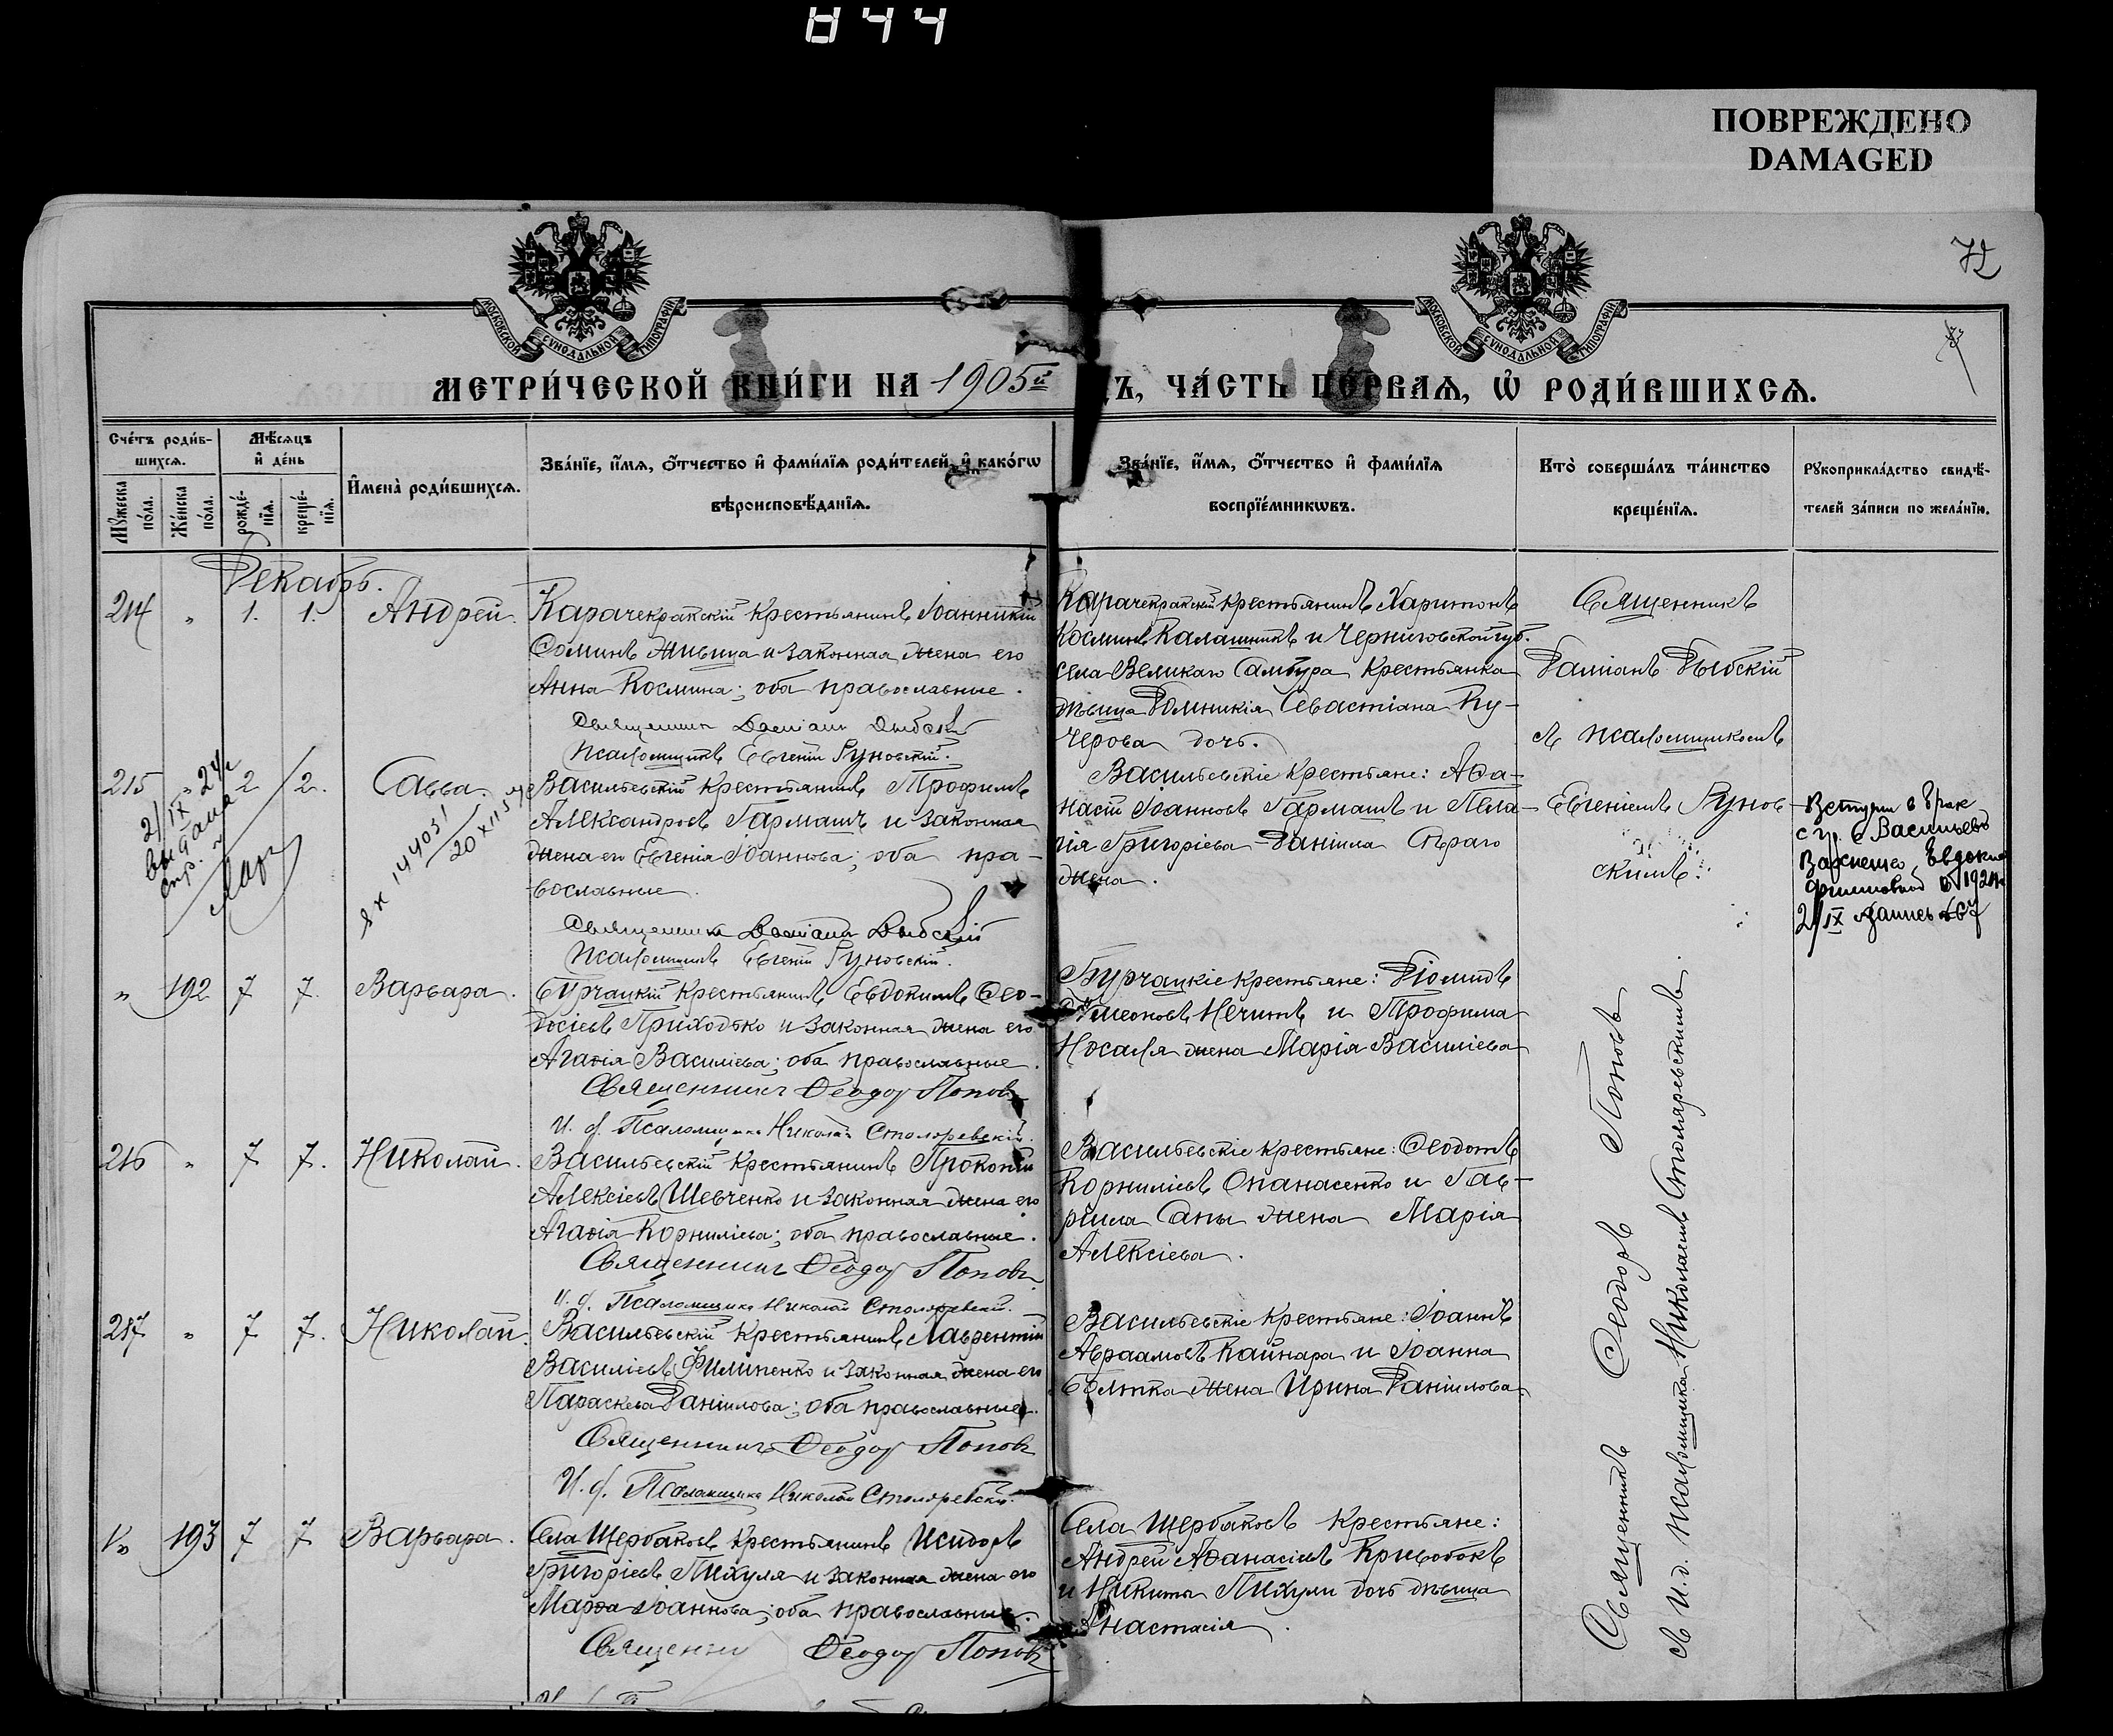 844
ПОВРЕЖДЕНО
DAMAGED
72
МОСКОВСКОЙ СѴНОДАЛЬНОЙ ТИПОГРАФІИ
МОСКОВСКОЙ СѴНОДАЛЬНОЙ ТИПОГРАФІИ
МЕТРИ́ЧЕСКОЙ КНИ́ГИ НА 1905й
Ъ, ЧА́СТЬ ПЕ́РВАЯ, Ѡ РОДИ́ВШИХСЯ.
Сче́тъ роди́в-
шихся.
Мѣ́сяцъ
и҆ де́нь
Мꙋ́жеска
по́ла.
Же́нска
по́ла.
рожде́-
нїя.
креще́-
нїя.
И҆мена̀ роди́вшихся.
Зва́нїе, и҆́мя, ѻ҆́тчество и҆ фами́лїя роди́телей, и҆ како́гѡ
вѣроисповѣ́данїя.
Зва́нїе, и҆́мя, ѻ҆́тчество и҆ фами́лїя
воспрїе́мникѡвъ.
Кто̀ соверша́лъ та́инство
креще́нїя.
Рꙋкоприкла́дство свидѣ́-
телей за́писи по жела́нїю.
Декабрь.
214 „ 1. 1. Андрей.
Карачекракскій крестьянинъ Іоанникій
Соминъ Живица и законная жена его
Анна Космина; оба православные.
Священникъ Даміанъ Дыбскій
Псаломщикъ Евгеній Руновскій.
Карачекракскій крестьянинъ Харитонъ
Косминъ Калашникъ и Черниговской губ.
села Великаго Самбура крестьянка
дѣвица Домникія Севастіана Ку-
черова дочь.
Священникъ
Даміанъ Дыбскій
съ псаломщикомъ
Евгеніемъ Рунов-
скимъ.
215 „ 2 2. Савва.
2/IX 24 г
выдана
спр.
144051
Васильевскій крестьянинъ Трофимъ
Александровъ Гармашъ и законная
жена его Евгенія Іоаннова; оба пра-
вославные.
Священникъ Даміанъ Дыбскій
Псаломщикъ Евгеній Руновскій.
Васильевскіе крестьяне: Аѳа-
насій Іоанновъ Гармашъ и Пела-
гія Григоріева Даніила Сѣраго
жена.
Вступил в брак
с гр. с Васильевк
Евдокией
в 1924 г
2/IX запись 167
„ 192 7 7. Варвара.
Бурчацкій крестьянинъ Евдокимъ Ѳео-
досіевъ Приходько и законная жена его
Агаѳія Василіева; оба православные.
Священникъ Ѳеодоръ Поповъ
И. д. Псаломщика Николай Столяревскій.
Бурчацкіе крестьяне: Діомидъ
Сѵмеоновъ Нечитъ и Трофима
Носаля жена Марія Василіева
216 „ 7 7. Николай.
Васильевскій крестьянинъ Прокопій
Алексіевъ Шевченко и законная жена его
Агаѳія Корниліева; оба православные.
Священникъ Ѳеодоръ Поповъ
И. д. Псаломщика Николай Столяревскій.
Васильевскіе крестьяне: Ѳеодотъ
Корниліевъ Опанасенко и Гав-
ріила Саны жена Марія
Алексіева.
217 „ 7 7. Николай.
Васильевскій крестьянинъ Лаврентій
Василіевъ Филипенко и законная жена его
Параскева Даніилова; оба православные.
Священникъ Ѳеодоръ Поповъ
И. д. Псаломщика Николай Столяревскій.
Васильевскіе крестьяне: Іоаннъ
Авраамовъ Кайнара и Іоанна
Болтка жена Ирина Даніилова
„ 193 7 7 Варвара.
Села Щербаковъ крестьянинъ Исидоръ
Григоріевъ Пихуля и законная жена его
Марѳа Іоаннова; оба православные.
Священни Ѳеодоръ Поповъ
Села Щербаковъ крестьяне:
Андрей Аѳанасіевъ Кривобокъ
и Никиты Пихули дочь дѣвица
Анастасія.
Священникъ Ѳеодоръ Поповъ
съ И.д. псаломщика Николаемъ Столяревскимъ.